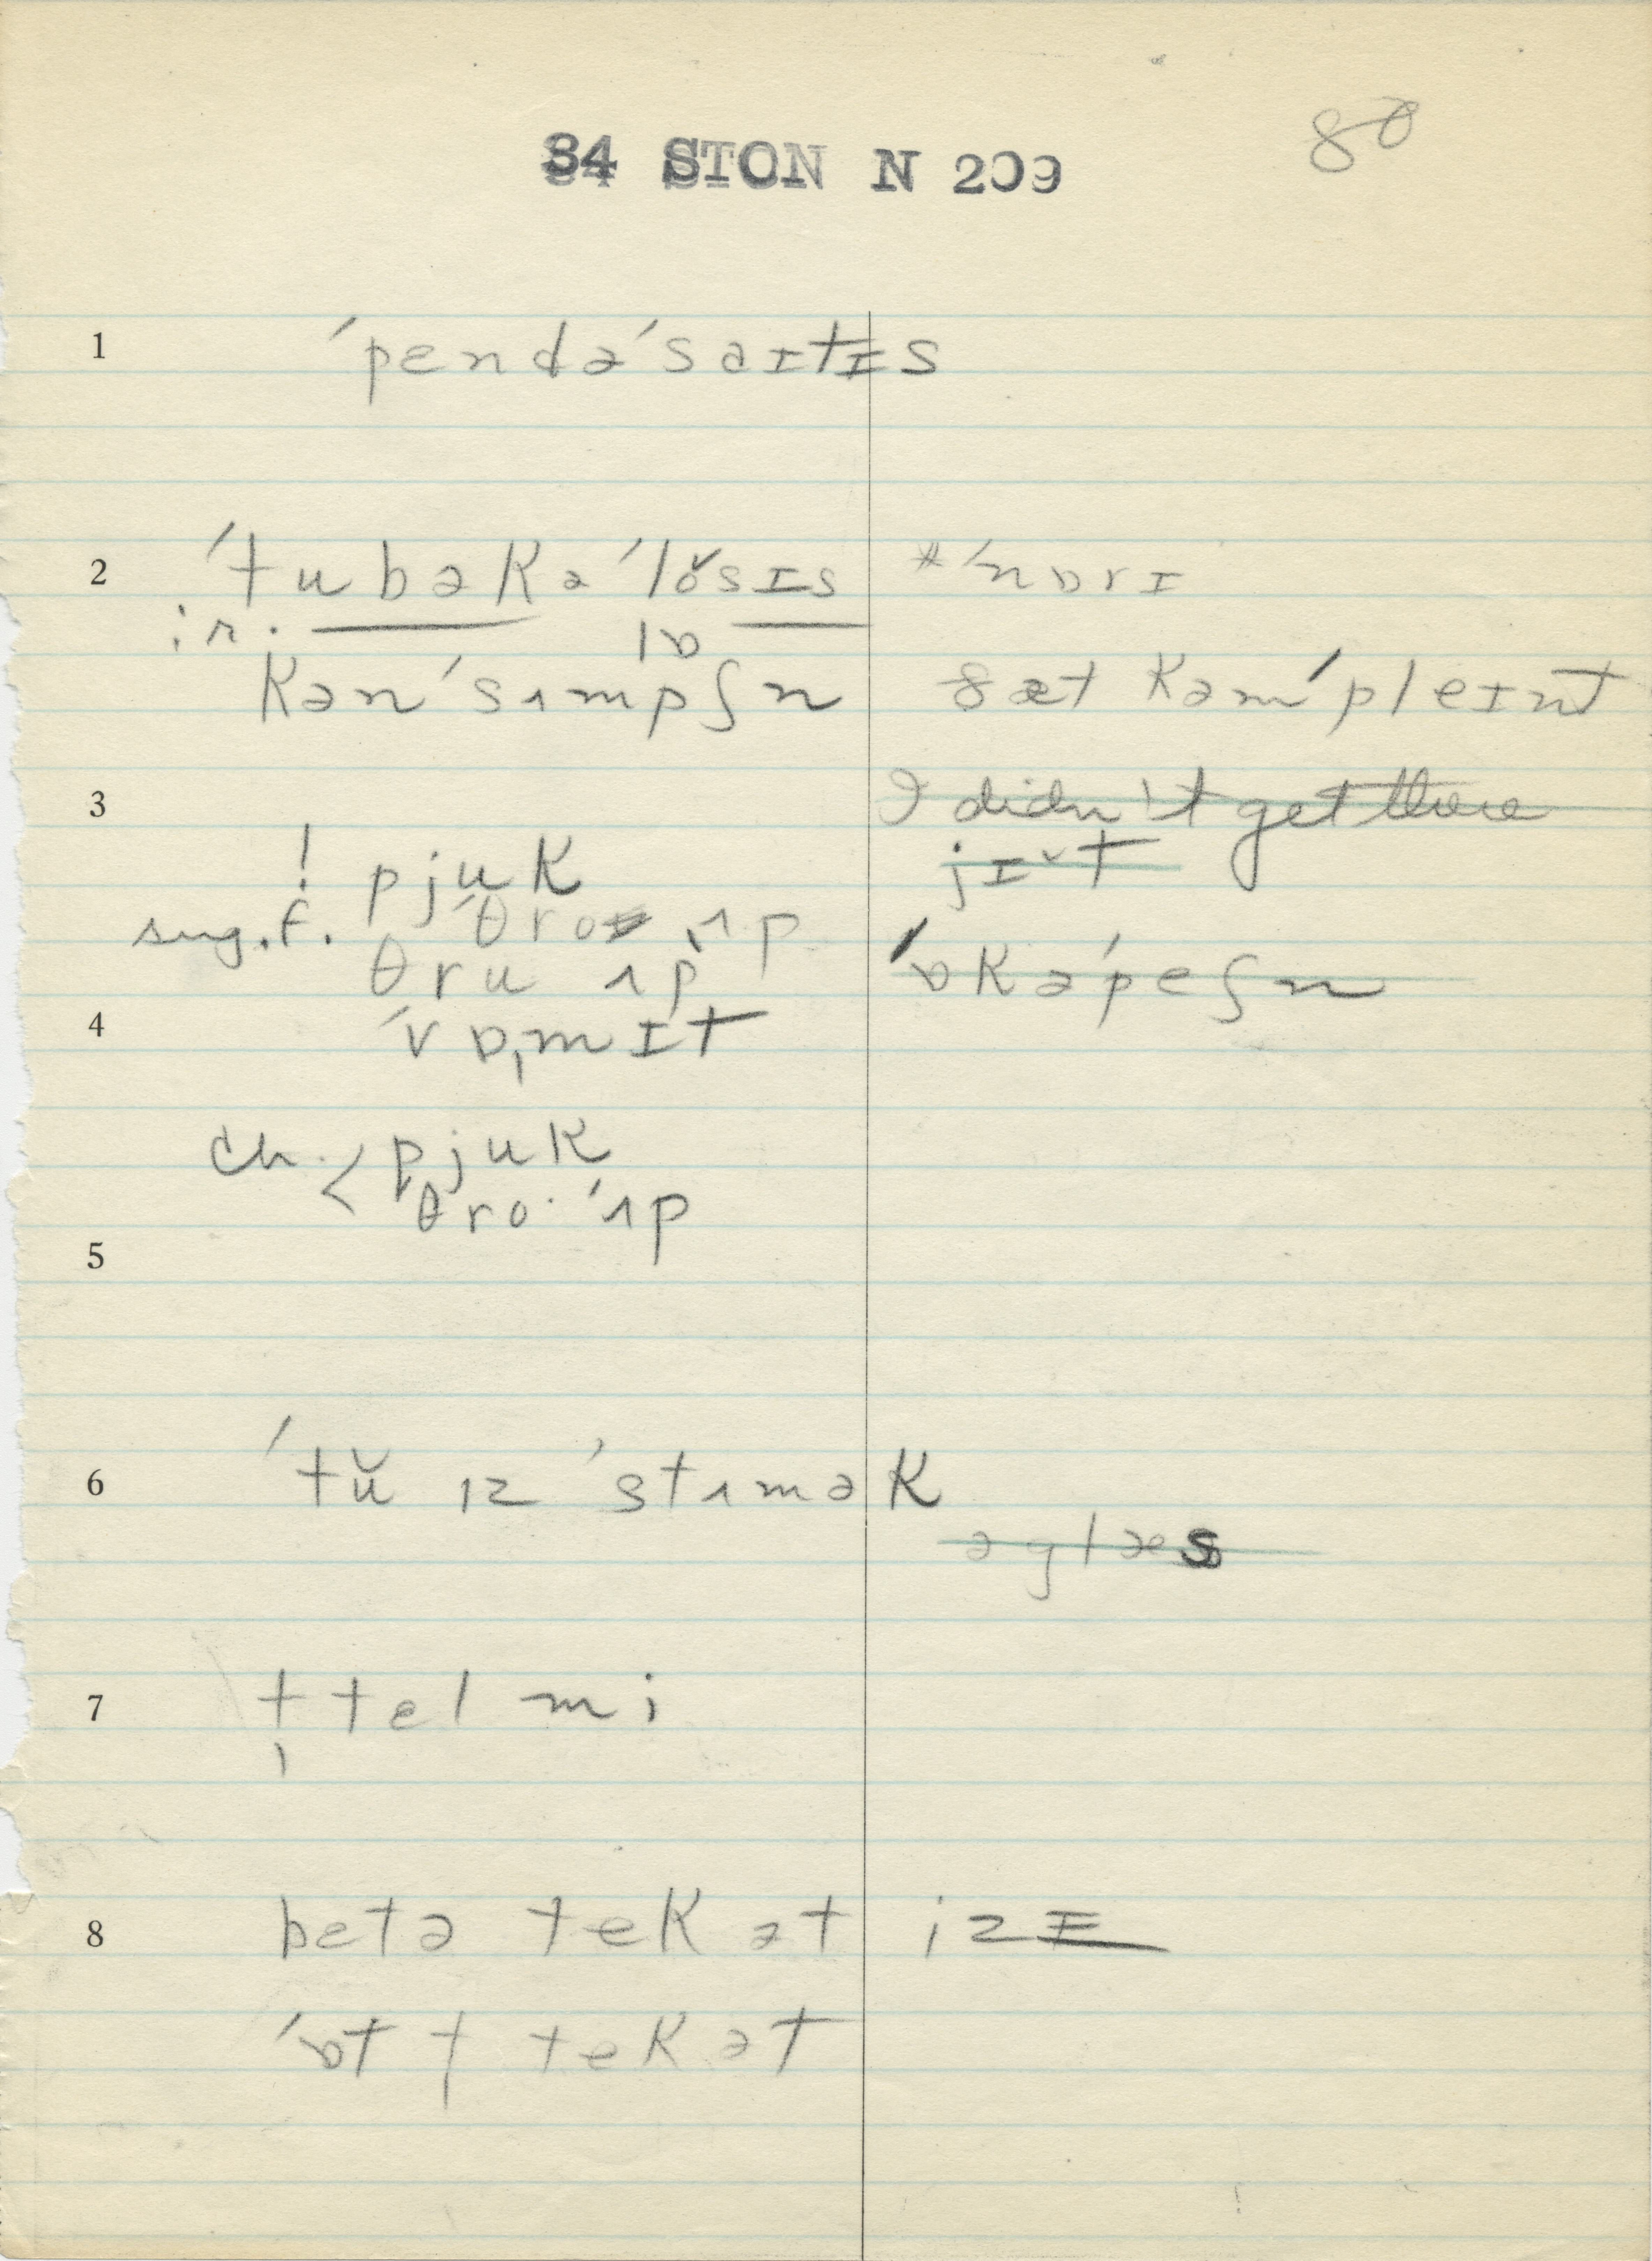 84 STON N 209
80
1 ˈpendəˈsaɪtɪs
2 ˈtubəkəˈlŏsɪs *ˈnɒrɪ
ir. lɒ
kənˈsʌmpʃn ðæt kəmˈpleɪnt
3 I didn't get there
! pjuk jɪ̆t
sug.f. ˈθro ˌʌp
θru ʌp ˈɒkəˈpeʃn
4 ˈvɒ,mɪt
ch. < pjuk
θro· ˈʌp
5
6 ˈtŭ ɪz ˈstʌmək
əglæs
7 † tel mi
8 betə tek ət izɪ
ˈɒt † tek ət